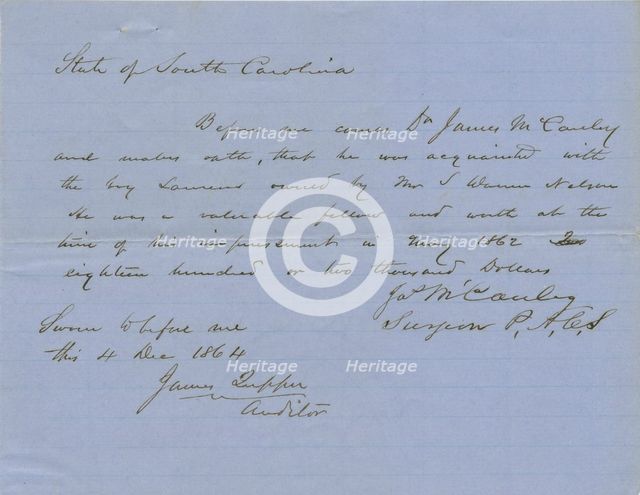 State of South Carolina
Before me comes Dr James McCauley
and makes oath, that he was acquainted with
the boy Laurens owned by Mr S Warren Nelson
He was a valuable fellow and worth at the
time of his impressment in May 1862
eighteen hundred or two thousand Dollars
Jas McCauley
Sworn to before me Surgeon P. A. C. S
this 4 Dec 1864
James Tupper
Auditor